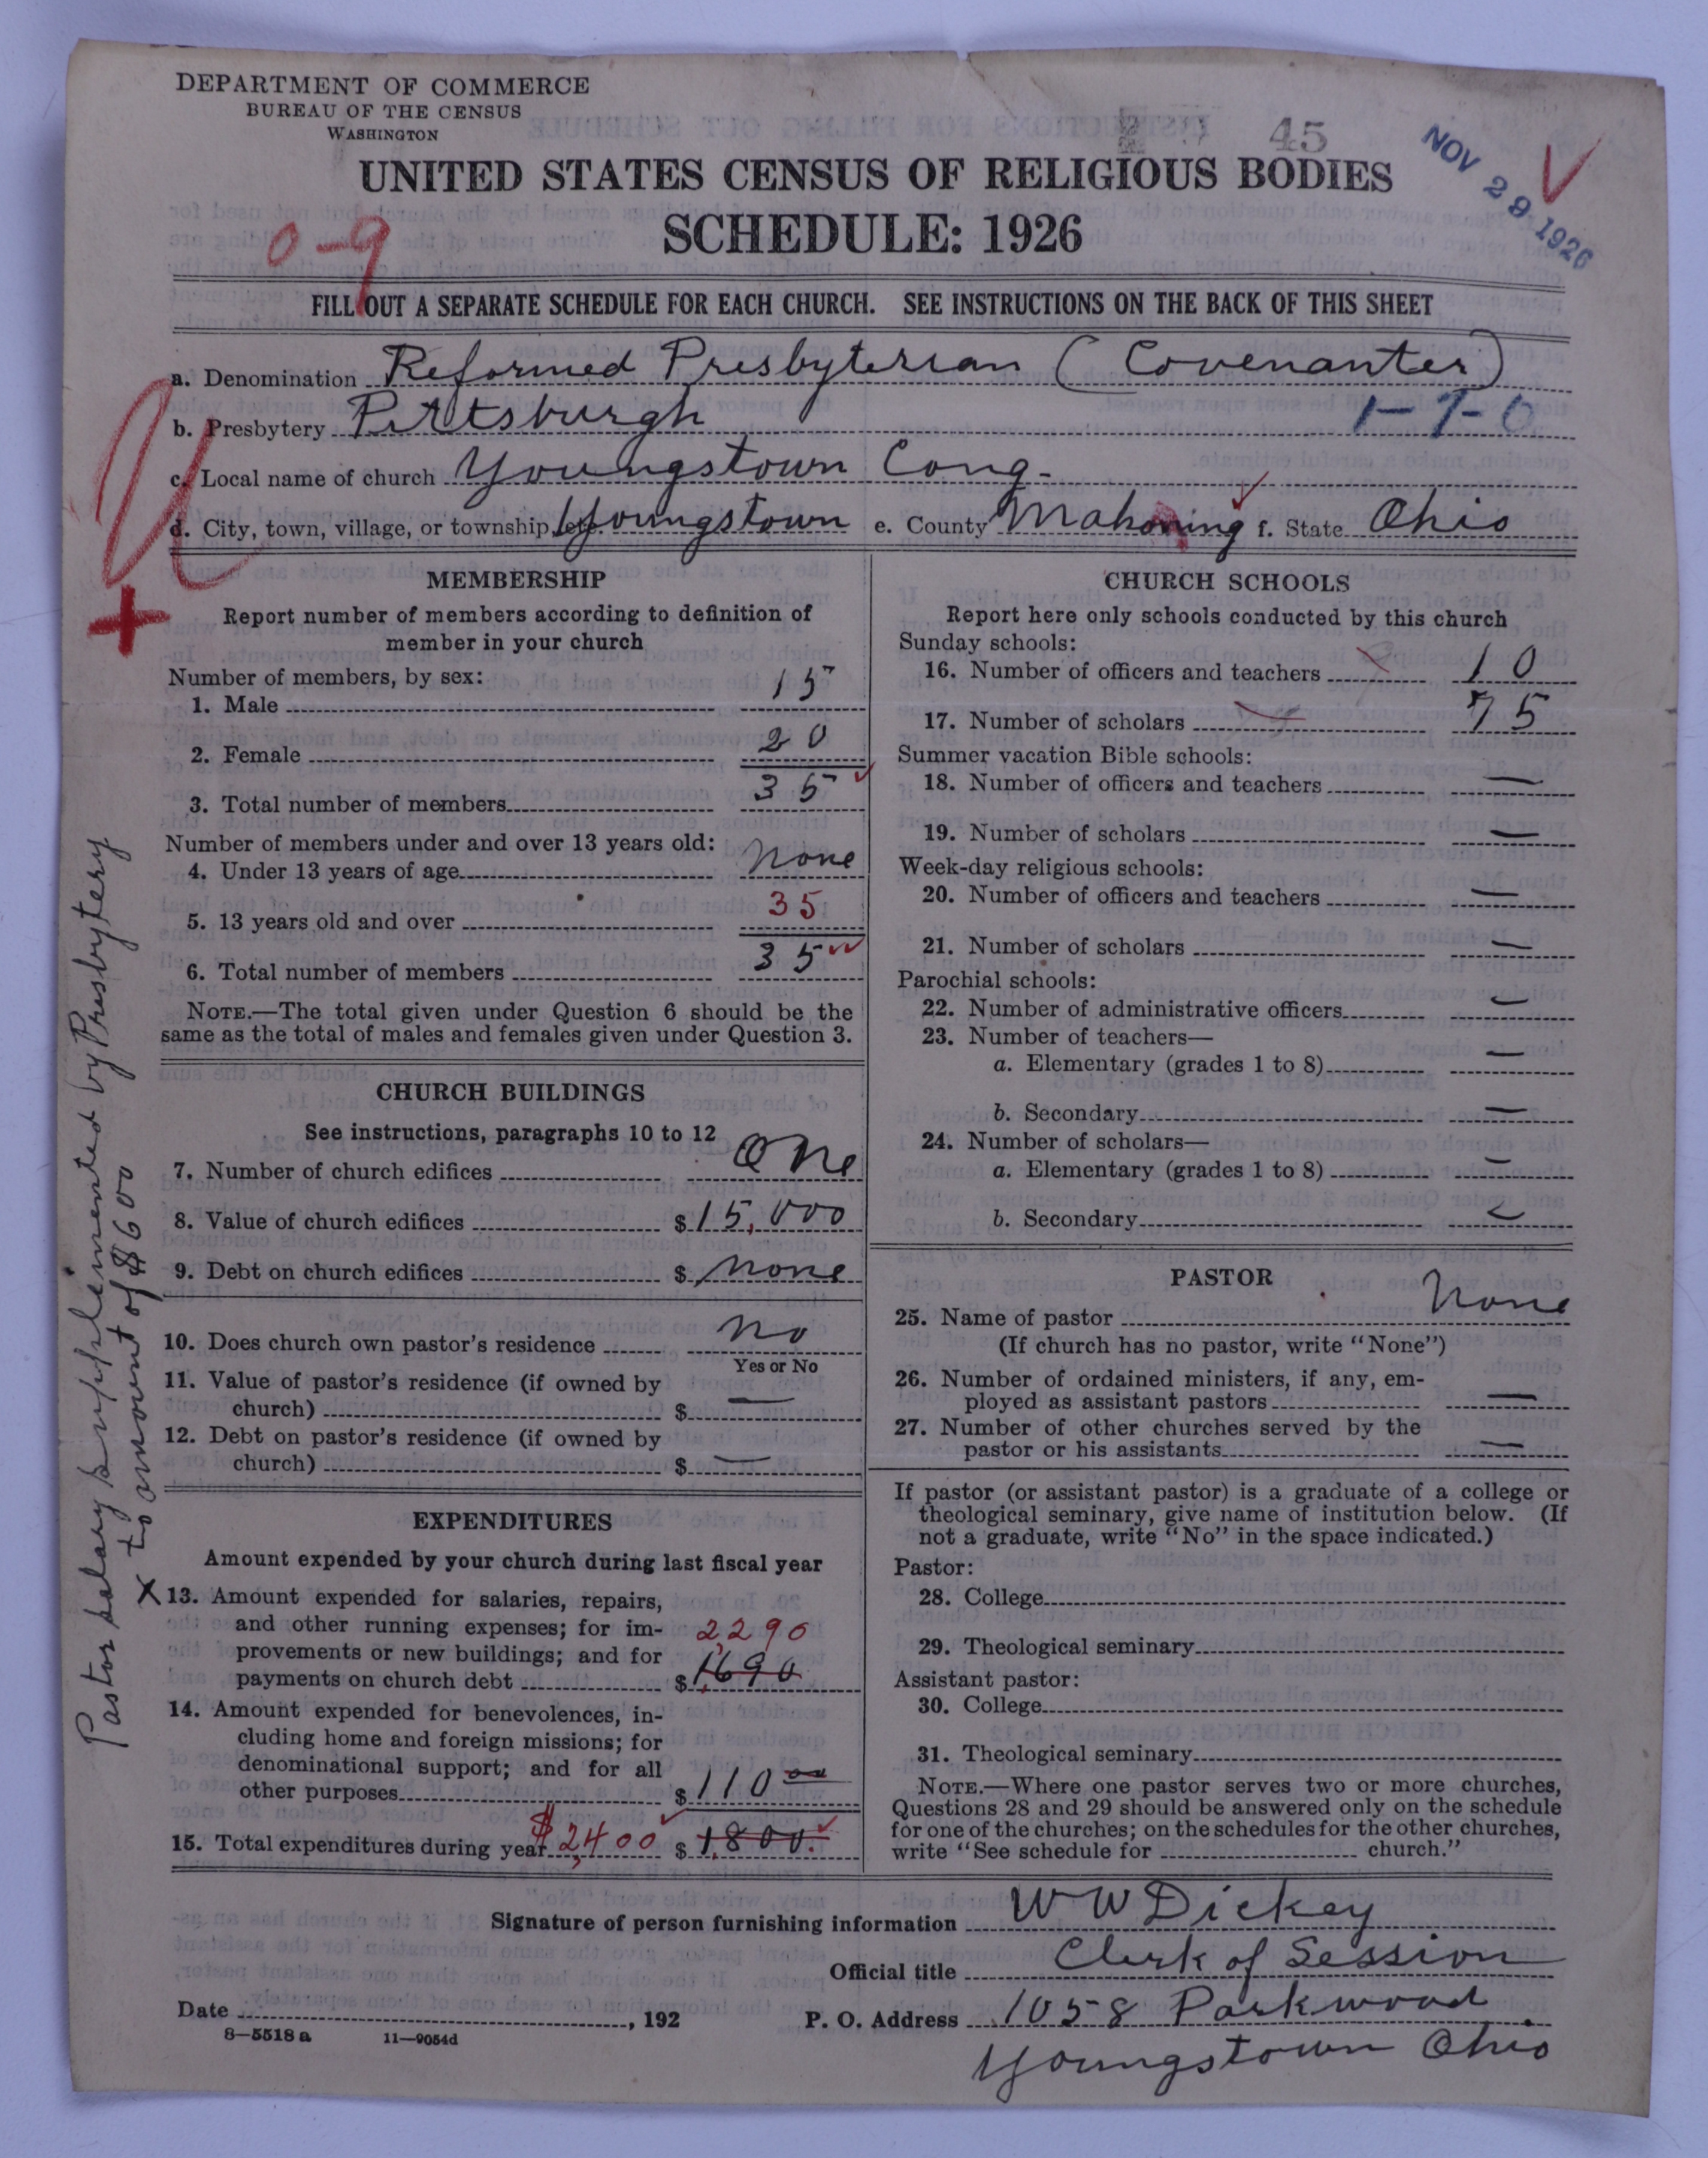 DEPARTMENT OF COMMERCE
BUREAU OF THE CENSUS
WASHINGTON
45
NOV 29 1926
UNITED STATES CENSUS OF RELIGIOUS BODIES
SCHEDULE: 1926
0-9
FILL OUT A SEPARATE SCHEDULE FOR EACH CHURCH. SEE INSTRUCTIONS ON THE BACK OF THIS SHEET
a. Denomination Reformed Presbyterian (Covenanter)
b. Presbytery Pittsburgh 1-7-0
c. Local name of church Youngstown Cong.
d. City, town, village, or township, etc. Youngstown e. County Mahoning f. State Ohio
MEMBERSHIP
Report number of members according to definition of
member in your church
Number of members, by sex:
1. Male 15
2. Female 20
3. Total number of members 35
Number of members under and over 13 years old:
4. Under 13 years of age none
5. 13 years old and over 35
6. Total number of members 35
NOTE.—The total given under Question 6 should be the
same as the total of males and females given under Question 3.
CHURCH BUILDINGS
See instructions, paragraphs 10 to 12
7. Number of church edifices One
8. Value of church edifices $15,000
9. Debt on church edifices $ none
10. Does church own pastor's residence no
Yes or No
11. Value of pastor's residence (if owned by
church) $ —
12. Debt on pastor's residence (if owned by
church) $ —
EXPENDITURES
Amount expended by your church during last fiscal year
X 13. Amount expended for salaries, repairs,
and other running expenses; for im-
provements or new buildings; and for 2,290
payments on church debt $1,690
14. Amount expended for benevolences, in-
cluding home and foreign missions; for
denominational support; and for all
other purposes $110 00
15. Total expenditures during year $2,400 $1,800.
Pastor salary supplimented by Presbytery
to amount of $600
CHURCH SCHOOLS
Report here only schools conducted by this church
Sunday schools:
16. Number of officers and teachers 10
17. Number of scholars 75
Summer vacation Bible schools:
18. Number of officers and teachers —
19. Number of scholars —
Week-day religious schools:
20. Number of officers and teachers —
21. Number of scholars —
Parochial schools:
22. Number of administrative officers —
23. Number of teachers—
a. Elementary (grades 1 to 8) —
b. Secondary —
24. Number of scholars—
a. Elementary (grades 1 to 8) —
b. Secondary —
PASTOR
25. Name of pastor None
(If church has no pastor, write "None")
26. Number of ordained ministers, if any, em-
ployed as assistant pastors —
27. Number of other churches served by the
pastor or his assistants —
If pastor (or assistant pastor) is a graduate of a college or
theological seminary, give name of institution below. (If
not a graduate, write "No" in the space indicated.)
Pastor:
28. College
29. Theological seminary
Assistant pastor:
30. College
31. Theological seminary
NOTE.—Where one pastor serves two or more churches,
Questions 28 and 29 should be answered only on the schedule
for one of the churches; on the schedules for the other churches,
write "See schedule for church."
Signature of person furnishing information W W Dickey
Official title Clerk of Session
Date , 192 P. O. Address 1058 Parkwood
8—5518 a 11—9054d
Youngstown Ohio